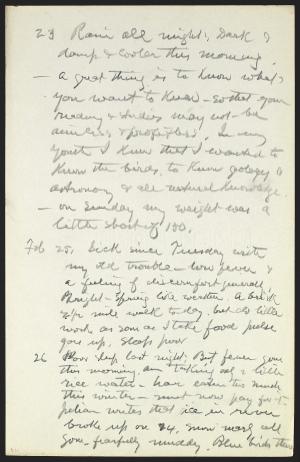 23 Rain all night, Dark &
damp & cooler this morning.
— A great thing is to know what
you want to know — so that your
reading & studies may not be
aimless & profitless. In my
youth I knew that I wanted to
know the birds, to know geology &
astronomy & all natural knowledge.
— On Sunday my weight was a
little short of 150.
Feb 25, Sick since Tuesday with
my old trouble — low fever &
a feeling of discomfort generally.
Bright – Spring like weather. A brisk
mile walk to-day. but do little
work as soon as I take food pulse
goes up. Sleep poor
26 Poor sleep last night; But fever gone
this morning. am taking only a little
rice water — have eaten too much
this winter — must now pay for it.
Julian writes that ice in river
broke up on 24. Snow nearly all
gone. fearfully muddy. Blue birds there